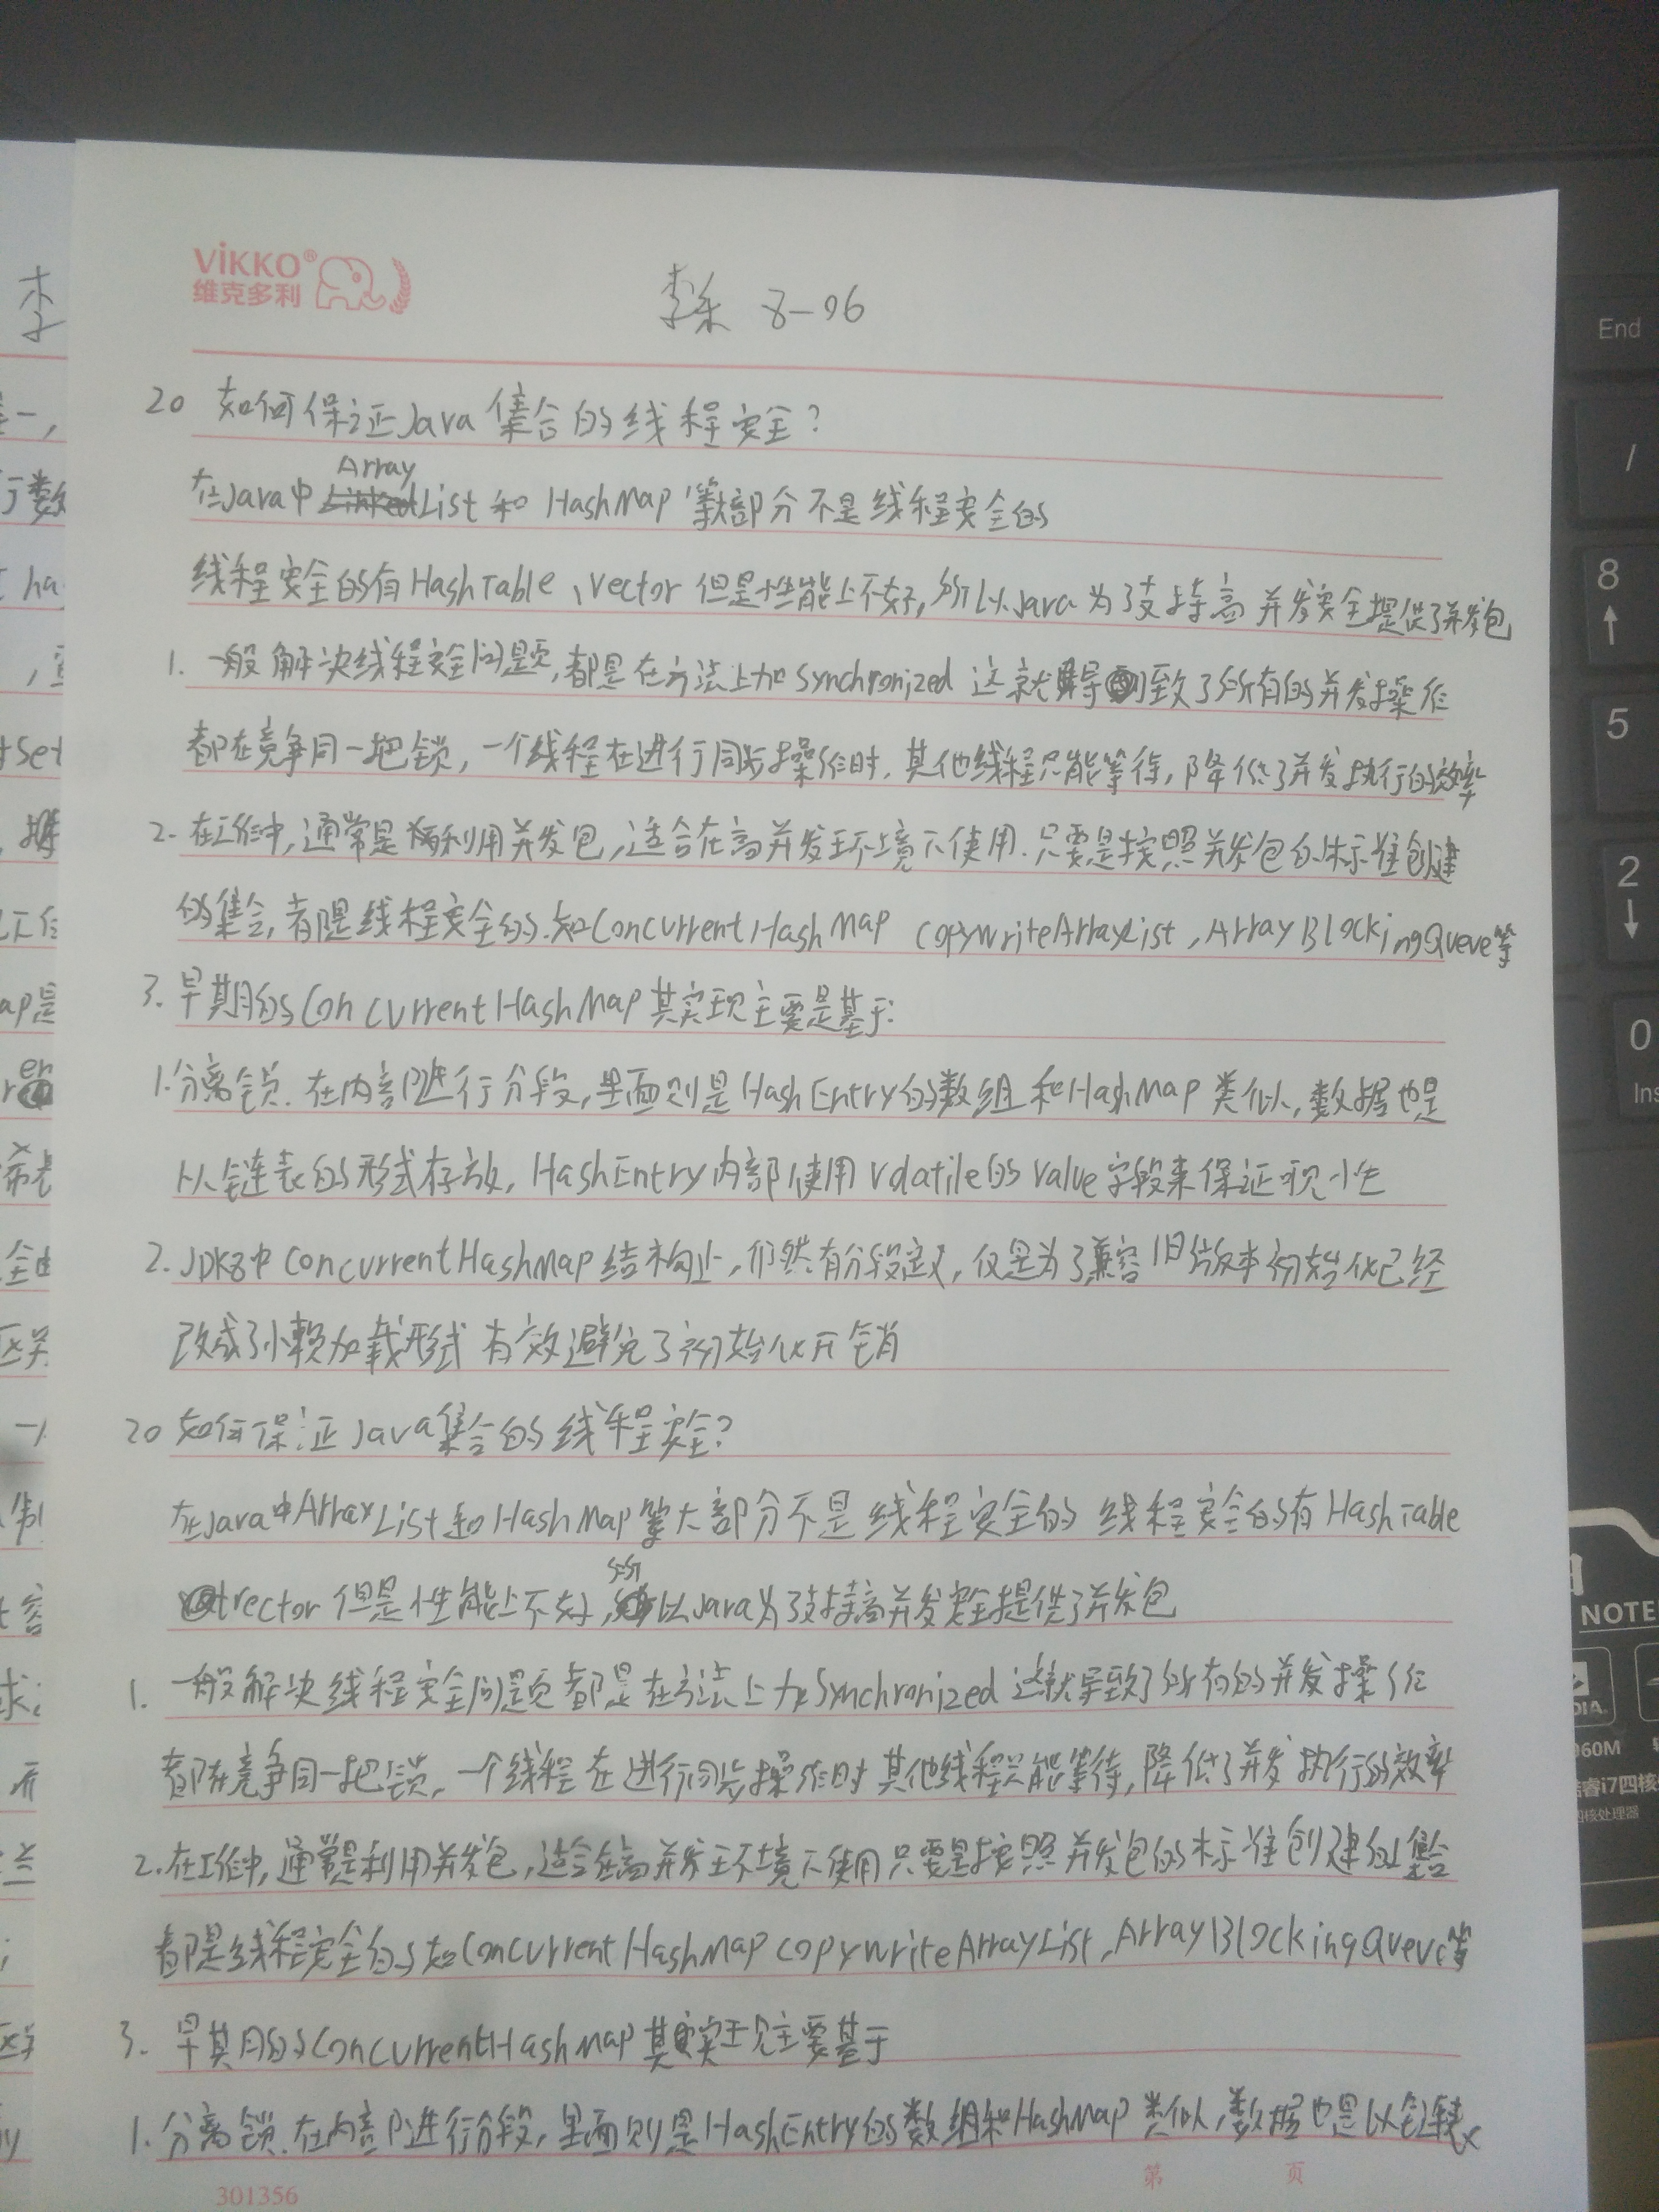 VIKKO®
维克多利
李 8-06
20 如何保证Java集合的线程安全?
Array
在Java中LinkedList和 HashMap 等大部分不是线程安全的
线程安全的有HashTable、vector 但是性能上不好,所以Java为了支持高并发安全提供了并发包
1. 一般解决线程安全问题,都是在方法上加Synchronized 这就导致了所有的并发操作
都在竞争同一把锁,一个线程在进行同步操作时,其他线程只能等待,降低了并发执行的效率
2. 在工作中,通常是利用并发包,适合在高并发环境下使用.只要是按照并发包的标准创建
的集合,都是线程安全的.如ConcurrentHashMap CopyWriteArrayList,ArrayBlockingQueue等
3. 早期的ConcurrentHashMap其实现主要是基于:
1.分离锁.在内部进行分段,里面则是HashEntry的数组和HashMap类似,数据也是
以链表的形式存放,HashEntry内部使用volatile的value字段来保证可见性
2. JDK8中 ConcurrentHashMap结构上,仍然有分段定义,仅是为了兼容旧版本初始化已经
改成了懒加载形式 有效避免了初始化开销
20 如何保证Java集合的线程安全?
在Java中ArrayList和HashMap等大部分不是线程安全的 线程安全的有HashTable
vector 但是性能上不好,所以Java为了支持高并发安全提供了并发包
1. 一般解决线程安全问题都是在方法上加Synchronized 这就导致了所有的并发操作
都在竞争同一把锁,一个线程在进行同步操作时其他线程只能等待,降低了并发执行的效率
2.在工作中,通常是利用并发包,适合在高并发环境下使用只要是按照并发包的标准创建的集合
都是线程安全的如ConcurrentHashMap CopyWriteArrayList,ArrayBlockingQueue等
3. 早期的ConcurrentHashMap其实现主要基于
1. 分离锁.在内部进行分段,里面则是HashEntry的数组和HashMap类似,数据也是以链表
第 页
301356
End
/
8
5
2
0
Ins
NOTE
960M
睿i7四核
四核处理器